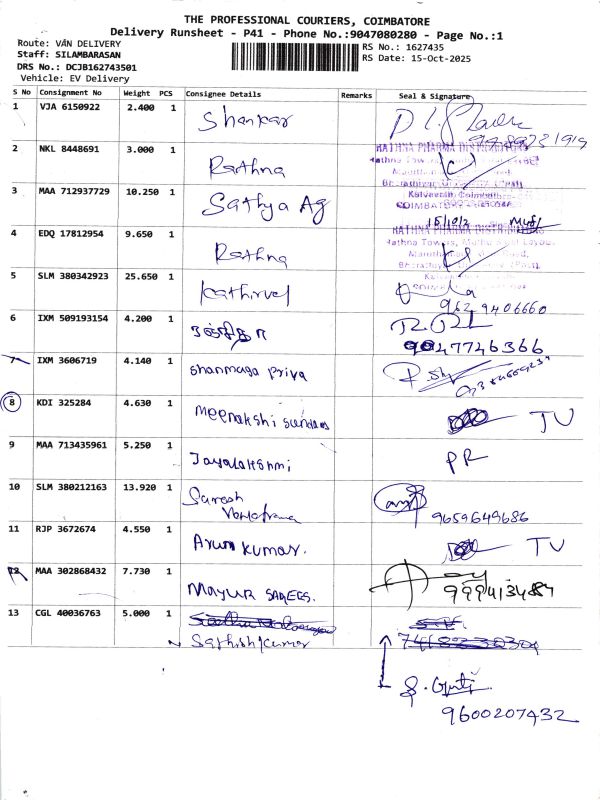 THE PROFESSIONAL COURIERS, COIMBATORE
Delivery Runsheet - P41 - Phone No.:9047080280 - Page No.:1
Route: VAN DELIVERY
Staff: SILAMBARASAN
DRS No.: DCJB162743501
Vehicle: EV Delivery
RS No.: 1627435
RS Date: 15-Oct-2025
S No Consignment No Weight PCS Consignee Details Remarks Seal & Signature
1 VJA 6150922 2.400 1 Shankar
2 NKL 8448691 3.000 1 Rathna
RATHNA PHARMA DISTRIBUTORS
3 MAA 712937729 10.250 1 Sathya Ag
COIMBATORE
15/10/2
4 EDQ 17812954 9.650 1 Rathna
RATHNA PHARMA DISTRIBUTORS
Rathna Towers,
5 SLM 380342923 25.650 1 Kathirvel
9629406660
6 IXM 509193154 4.200 1
9047746366
7 IXM 3606719 4.140 1 Shanmaga Priya
8 KDI 325284 4.630 1 Meenakshi Sundaram TV
9 MAA 713435961 5.250 1 Jayalakshmi PR
10 SLM 380212163 13.920 1 Suresh
9659649686
11 RJP 3672674 4.550 1 Arun Kumar. TV
12 MAA 302868432 7.730 1 Mayur
13 CGL 40036763 5.000 1
Sathishkumar
9600207432